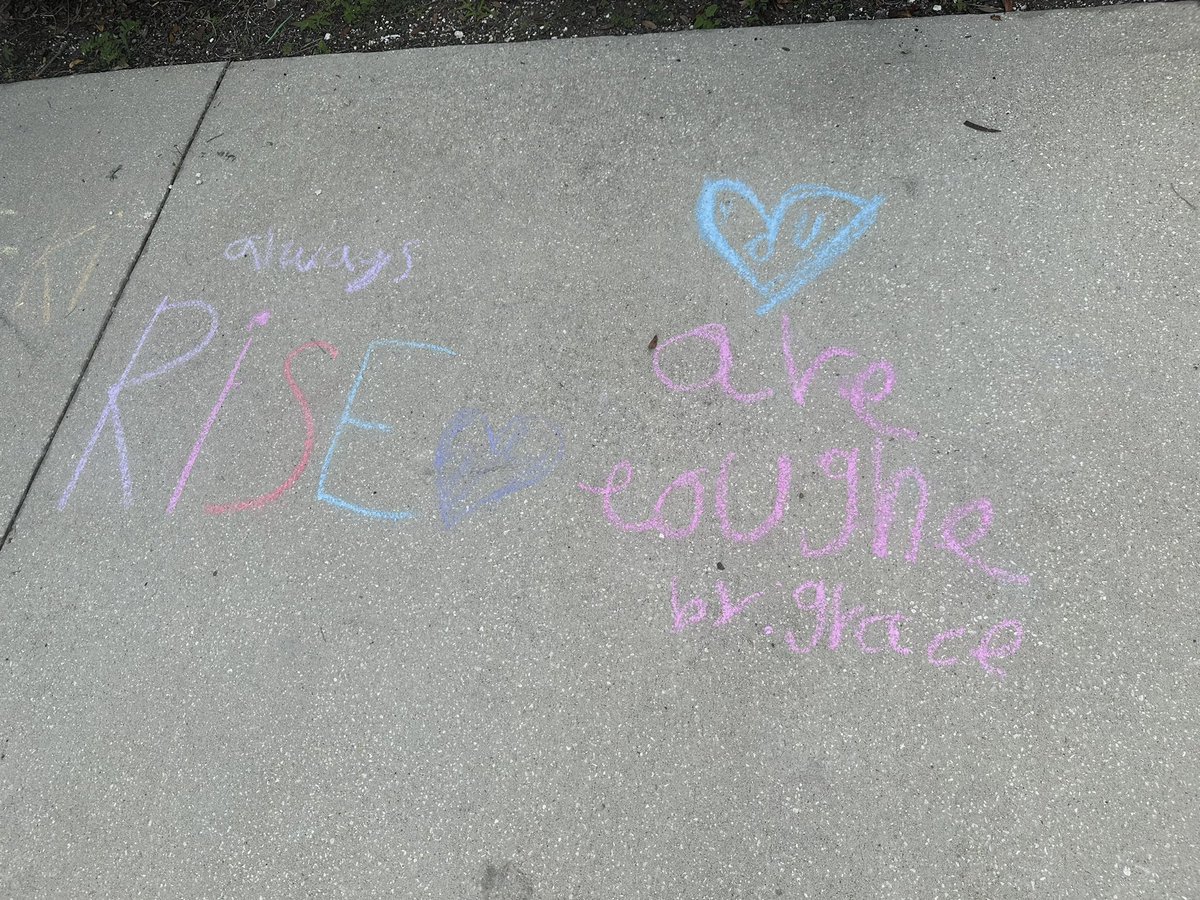 always
RiSE
are
eoughe
by:grace